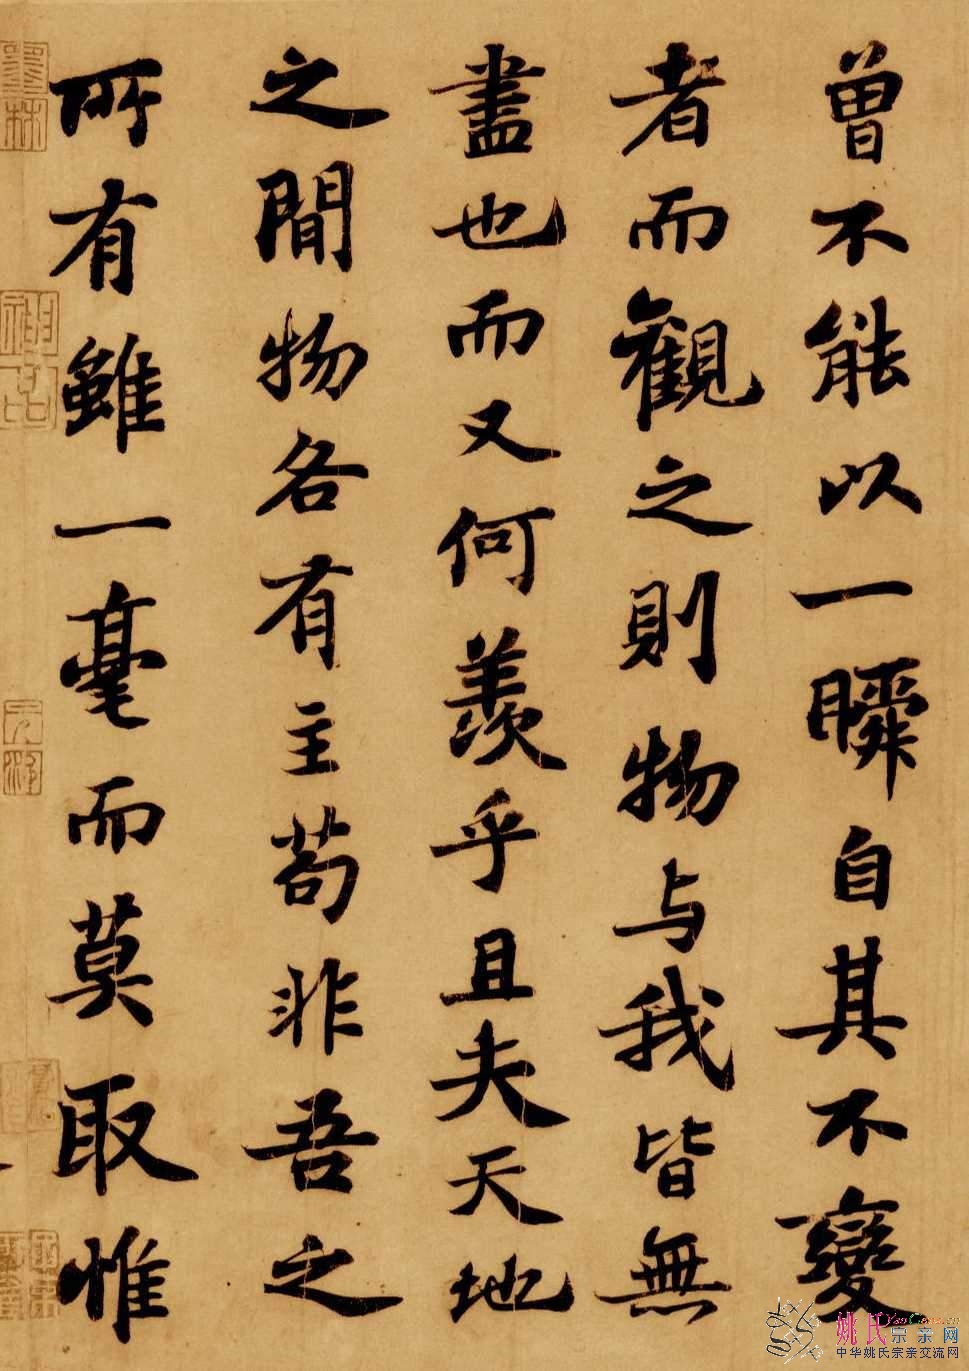 曾不能以一瞬自其不變
者而觀之則物与我皆無
盡也而又何羨乎且夫天地
之間物各有主苟非吾之
所有雖一毫而莫取惟
姚氏宗亲网
YaoCome.cn
中华姚氏宗亲交流网